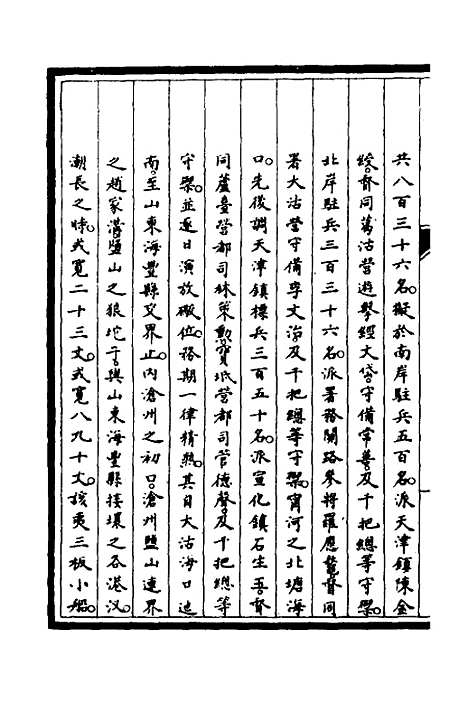 共八百三十六名。擬於南岸駐兵五百名。派天津鎮陳金
綬。督同葛沽營遊擊經文岱。守備常善。及千把總等守禦。
北岸駐兵三百三十六名。派署務關路參將羅應鰲。督同
署大沽營守備李文治。及千把總等守禦。甯河之北塘海
口。先後調天津鎮標兵三百五十名。派宣化鎮石生玉。督
同蘆臺營都司林策勳。寶坻營都司管德聲。及千把總等
守禦。並逐日演放礮位。務期一律精熟。其自大沽海口迤
南。至山東海豐縣交界止。內滄州之初口。滄州鹽山連界
之趙家溝。鹽山之狼坨子。與山東海豐縣接壤之各港汊。
潮長之時。或寬二十三丈。或寬八九十丈。該夷三板小船。